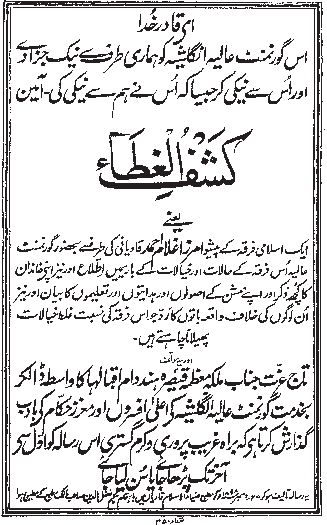 اے قادر خدا
اس گورنمنٹ عالیہ انگلشیہ کو ہماری طرف سے نیک جزا دے
اور اس سے نیکی کر جیسا کہ اس نے ہم سے نیکی کی۔ آمین
کشف الغطاء
یعنے
ایک اسلامی فرقہ کے پیشوا مرزا غلام احمد قادیانی کی طرف سے بحضور گورنمنٹ
عالیہ اس فرقہ کے حالات اور خیالات کے بارے میں اطلاع اور نیز اپنے خاندان
کا کچھ ذکر اور اپنے مشن کے اصولوں اور ہدایتوں اور تعلیموں کا بیان اور نیز
ان لوگوں کی خلاف واقعہ باتوں کا رد جو اس فرقہ کی نسبت غلط خیالات
پھیلانا چاہتے ہیں۔
اور یہ مؤلف
تاج عزت جناب ملکہ معظمہ قیصرہ ہند دام اقبالہا کا واسطہ ڈالکر
بخدمت گورنمنٹ عالیہ انگلشیہ کی اعلیٰ افسروں اور معزز حکام کو باادب
گذارش کرتا ہے کہ براہ غریب پروری و کرم گستری اس رسالہ کو اول سے
آخر تک پڑھا جائے یا سن لیا جائے
یہ رسالہ تالیف ہو کر ۲۷ دسمبر